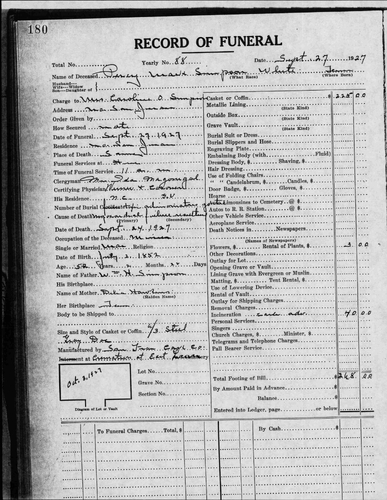 180
RECORD OF FUNERAL
Total No. Yearly No. 88 Date Sept. 27 1927
Name of Deceased Percy Mark Simpson White Tenn
(What Race) (Where Born)
Husband—
Wife—Widow
Son—Daughter of
Charge to Mrs. Caroline O. Simpson
Address
Order Given by
How Secured
Date of Funeral Sept. 29, 1927
Residence
Place of Death
Funeral Services at Home
Time of Funeral Service 11 a.m.
Clergyman
Certifying Physician
His Residence
Number of Burial Certificate
Cause of Death
(Primary) (Secondary)
Date of Death Sept. 24, 1927
Occupation of the Deceased
Single or Married Mar Religion
Date of Birth July 2, 1852
Age Years Months Days
Name of Father Simpson
His Birthplace
Name of Mother Hawkins
(Maiden Name)
Her Birthplace Tenn
Body to be Shipped to
Size and Style of Casket or Coffin 6/3 Steel
Grey Doe
Manufactured by San Fran Cskt. Co.
Interment at Cremation at
Lot No.
Grave No.
Section No.
Oct. 3, 1927
Diagram of Lot or Vault
Casket or Coffin 225 00
Metallic Lining
(State Kind)
Outside Box
(State Kind)
Grave Vault
(State Kind)
Burial Suit or Dress
Burial Slippers and Hose
Engraving Plate
Embalming Body (with Fluid)
Dressing Body, $ Shaving, $
Hair Dressing
Use of Folding Chairs
" " Candelabrum, $ Candles, $
Door Badge, $ Gloves, $
Hearse
Limousines to Cemetery @ $
Autos to R. R. Station @ $
Other Vehicle Service
Aeroplane Service
Death Notices in Newspapers
(Names of Newspapers)
Flowers, $ Rental of Plants, $ 3 00
Other Decorations
Outlay for Lot
Opening Grave or Vault
Lining Grave with Evergreen or Muslin
Matting, $ Tent Rental, $
Use of Lowering Device
Rental of Vault
Outlay for Shipping Charges
Removal Charges
Incineration cash adv. 40 00
Personal Services
Singers
Church Charges, $ Minister, $
Telegrams and Telephone Charges
Pall Bearer Service
Total Footing of Bill 268 00
By Amount Paid in Advance
Balance
Entered into Ledger, page or below $
To Funeral Charges, Total $ By Cash $